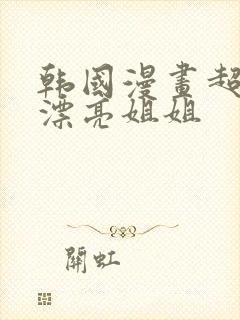 韩國漫畫超
漂亮姐姐
開虹